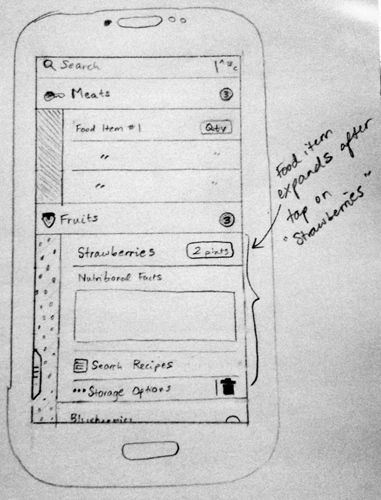 Search
Meats 3
Food Item #1 Qty
" "
" "
Fruits 3
Strawberries 2 pints
Nutritional Facts
Search Recipes
Storage Options
Blueberries
Food item
expands after
tap on
"Strawberries"